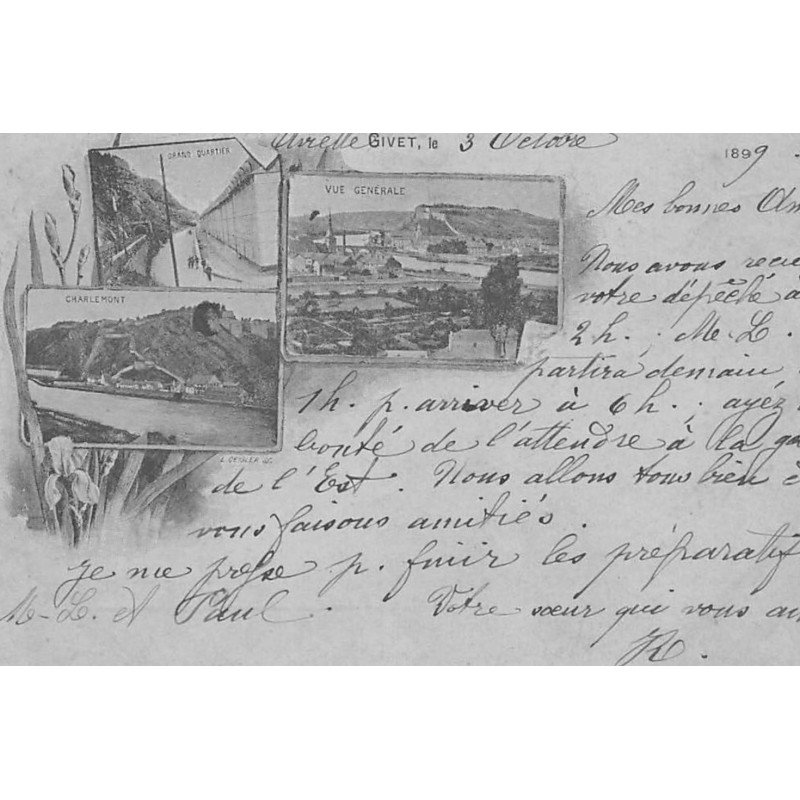 GIVET, le 3 Octobre 1899
GRAND QUARTIER
VUE GÉNÉRALE
CHARLEMONT
Mes bonnes Am
Nous avons reçu
votre dépêche à
2h. M-L.
partira demain
1h. p. arriver à 6h. ayez
bonté de l'attendre à la ga
de l'Est. Nous allons tous bien
vous faisons amitiés.
Je me presse p. finir les préparatif
M-L. et Paul. Votre sœur qui vous aim
R.